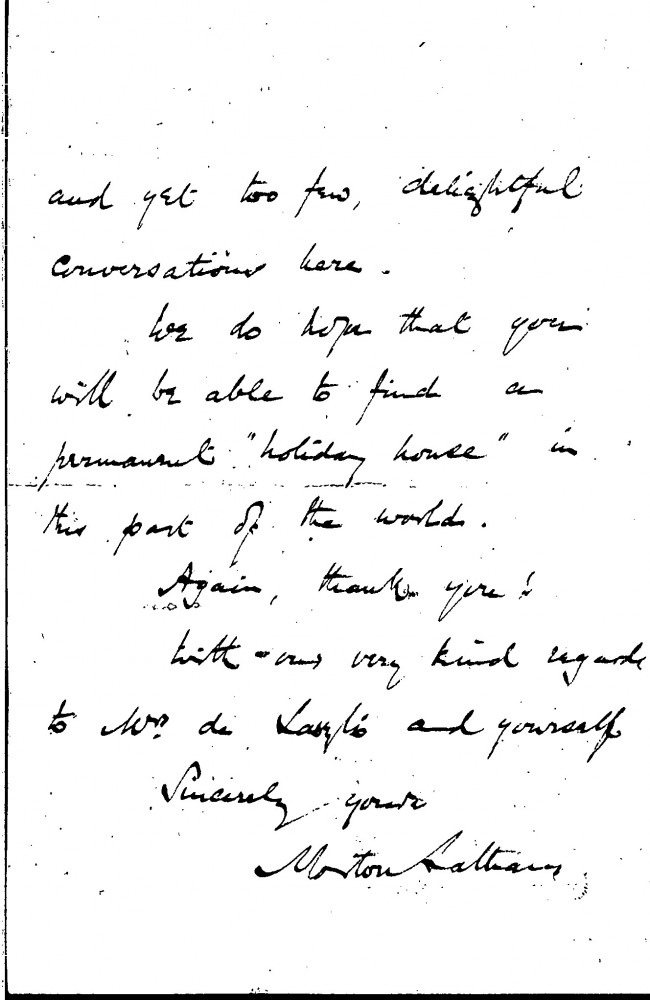 and yet too few, delightful
conversations here.
We do hope that you
will be able to find a
permanent "holiday house" in
this part of the world.
Again, thank you!
With our very kind regards
to Mrs. de László and yourself
Sincerely yours
Morton Latham